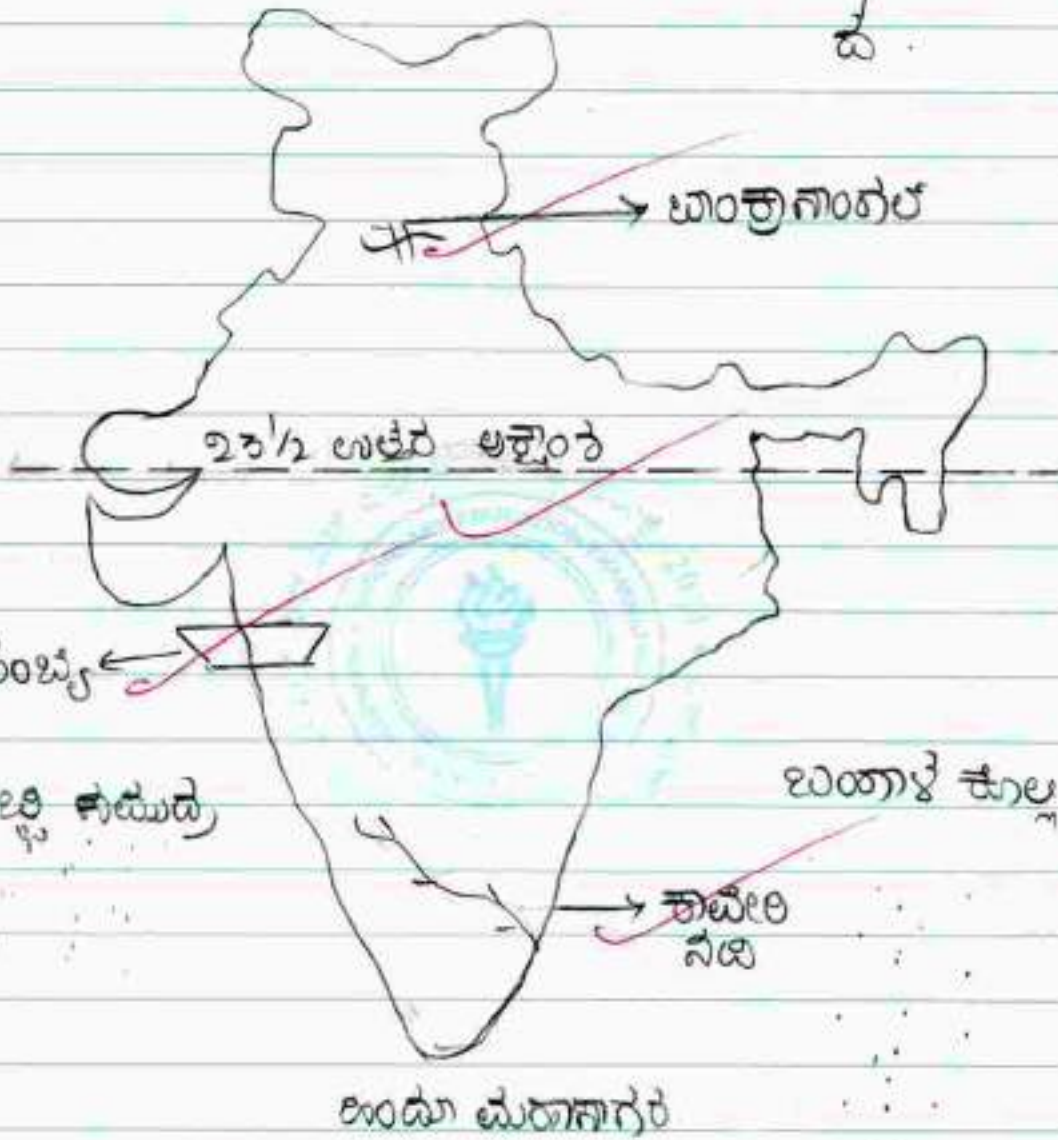 ದ.
ಬಾಂಕ್ರಾನಾಂಗಲ
23 1/2 ಉತ್ತರ ಅಕ್ಷಾಂಶ
ಂಬೈ
ಬ್ಬಿ ಸಮುದ್ರ
ಬಂಗಾಳ ಕೊಲ್ಲ
ಕಾವೇರಿ
ನದಿ
ಹಿಂದೂ ಮಹಾಸಾಗರ